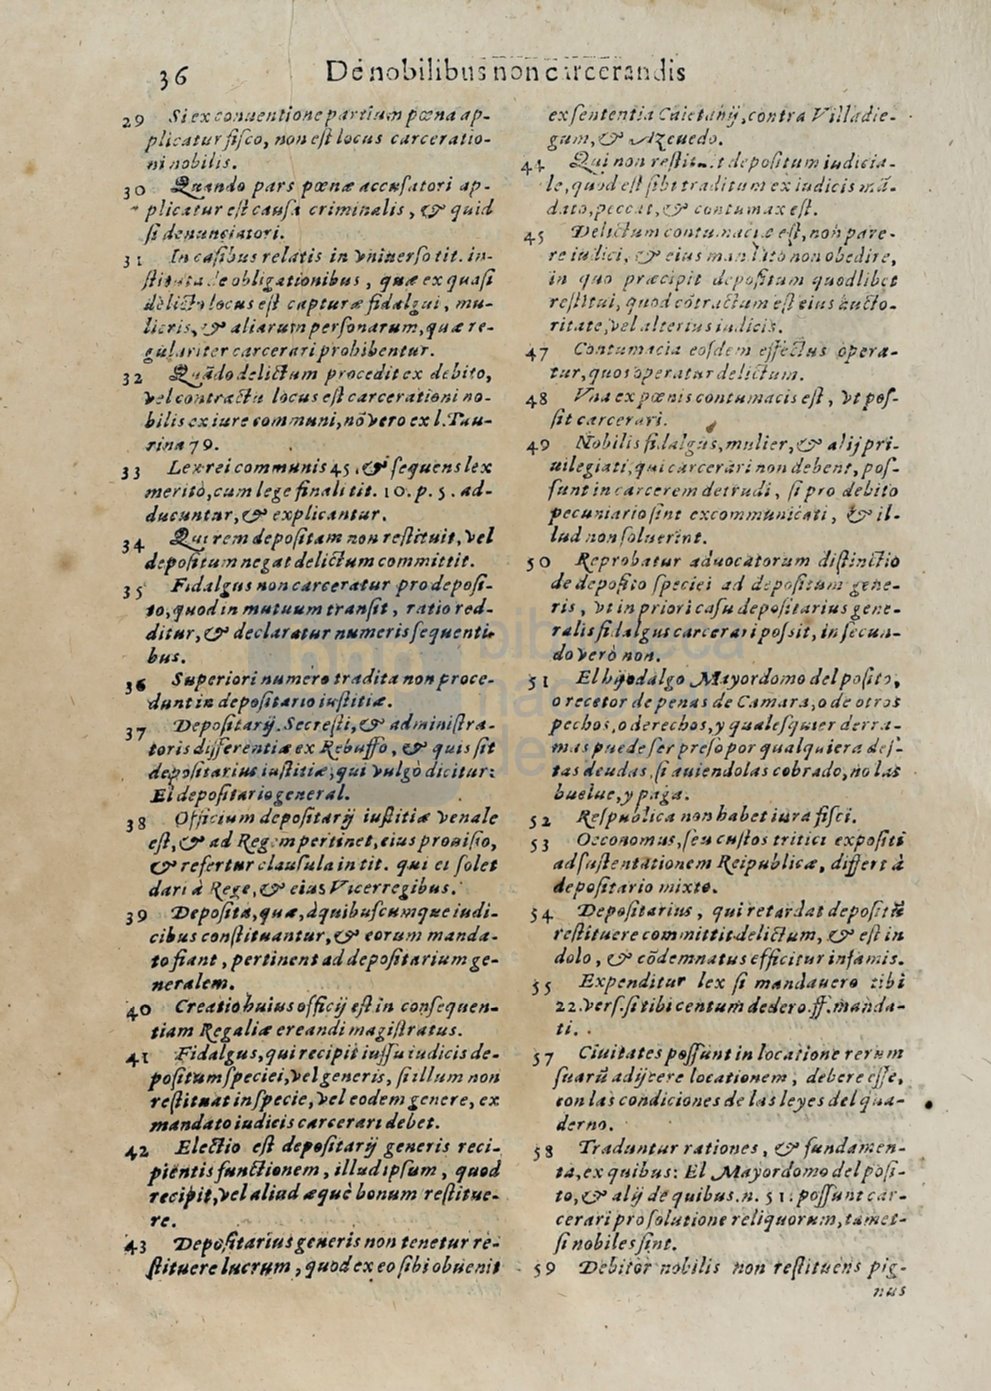 36 De nobilibus non carcerandis
29 Si ex conuentione partium pœna ap-
plicatur fisco, non est locus carceratio-
ni nobilis.
30 Quando pars pœnæ accusatori ap-
plicatur est causa criminalis, & quid
si denunciatori.
31 In casibus relatis in vniuerso tit. in-
stituta de obligationibus, quæ ex quasi
delicto locus est capturæ fidalgui, mu-
lieris, & aliarum personarum, quæ re-
gulariter carcerari prohibentur.
32 Quãdo delictum procedit ex debito,
vel contractu locus est carcerationi no-
bilis ex iure communi, nõ vero ex l. Tau-
rina 79.
33 Lex rei communis 45. & sequens lex
meritò, cum lege finali tit. 10. p. 5. ad-
ducuntur, & explicantur.
34 Qui rem depositam non restituit, vel
depositum negat delictum committit.
35 Fidalgus non carceratur pro deposi-
to, quod in mutuum transit, ratio red-
ditur, & declaratur numeris sequenti-
bus.
36 Superiori numero tradita non proce-
dunt in depositario iustitiæ.
37 Depositarij. Secresti, & administra-
toris differentiæ ex Rebuffo, & quis sit
depositarius iustitiæ, qui vulgò dicitur:
El depositario general.
38 Officium depositarij iustitiæ venale
est, & ad Regem pertinet, eius prouisio,
& refertur clausula in tit. qui ei solet
dari à Rege, & eius Vicerregibus.
39 Deposita, quæ, à quibuscumque iudi-
cibus constituantur, & eorum manda-
to fiant, pertinent ad depositarium ge-
neralem.
40 Creatio huius officij est in consequen-
tiam Regaliæ ereandi magistratus.
41 Fidalgus, qui recipit iussu iudicis de-
positum speciei, vel generis, si illum non
restituat in specie, vel eodem genere, ex
mandato iudicis carcerari debet.
42 Electio est depositarij generis reci-
pientis functionem, illud ipsum, quod
recipit, vel aliud æquè bonum restitue-
re.
43 Depositarius generis non tenetur re-
stituere lucrum, quod ex eo sibi obuenit
ex sententia Caietanij, contra Villadie-
gum, & Azeuedo.
44 Qui non restituit depositum iudicia-
le, quod est sibi traditum ex iudicis mã-
dato, peccat, & contumax est.
45 Delictum contumaciæ est, non pare-
re iudici, & eius mandato non obedire,
in quo præcipit depositum quodlibet
restitui, quod cõtractum est eius aucto-
ritate, vel alterius iudicis.
47 Contumacia eosdem effectus opera-
tur, quos operatur delictum.
48 Vna ex pœnis contumacis est, vt pos-
sit carcerari.
49 Nobilis fidalgus, mulier, & alij pri-
uilegiati, qui carcerari non debent, pos-
sunt in carcerem detrudi, si pro debito
pecuniario sint excommunicati, & il-
lud non soluerint.
50 Reprobatur aduocatorum distinctio
de deposito speciei ad depositum gene-
ris, vt in priori casu depositarius gene-
ralis fidalgus carcerari possit, in secun-
do verò non.
51 El hijodalgo Mayordomo del posito,
o recetor de penas de Camara, o de otros
pechos, o derechos, y qualesquier derra-
mas puede ser preso por qualquiera des-
tas deudas, si auiendolas cobrado, no las
buelue, y paga.
52 Respublica non habet iura fisci.
53 Oeconomus, seu custos tritici expositi
ad sustentationem Reipublicæ, differt à
depositario mixto.
54 Depositarius, qui retardat depositũ
restituere committit delictum, & est in
dolo, & cõdemnatus efficitur infamis.
55 Expenditur lex si mandauero tibi
22. vers. si tibi centum dedero. ff. manda-
ti.
57 Ciuitates possunt in locatione rerum
suarũ adijcere locationem, debere esse,
con las condiciones de las leyes del qua-
derno.
58 Traduntur rationes, & fundamen-
ta, ex quibus: El Mayordomo del posi-
to, & alij de quibus. n. 51. possunt car-
cerari pro solutione reliquorum, tamet-
si nobiles sint.
59 Debitor nobilis non restituens pig-
nus